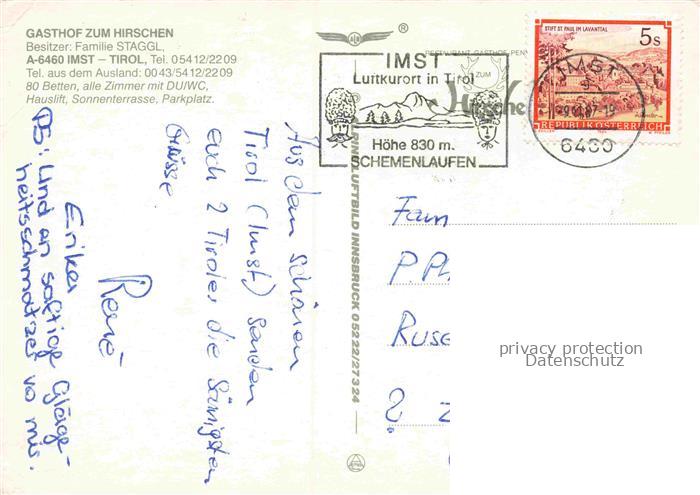 GASTHOF ZUM HIRSCHEN
Besitzer: Familie STAGGL,
A-6460 IMST – TIROL, Tel. 05412/2209
Tel. aus dem Ausland: 0043/5412/2209
80 Betten, alle Zimmer mit DU/WC,
Hauslift, Sonnenterrasse, Parkplatz.
®
RESTAURANT GASTHOF PEN
ZUM
Hirsche
IMST
Luftkurort in Tirol
Höhe 830 m.
SCHEMENLAUFEN
STIFT ST. PAUL IM LAVANTTAL
5s
REPUBLIK ÖSTERREICH
IMST
6460
ALPINE LUFTBILD INNSBRUCK 05222/27324
Aus dem schönen
Tirol (Imst) senden
euch 2 Tiroler die
Grüsse
René
Erika
PS: Und an saftige
heitsschmatzer vo mir.
Fam
P.P
Ruse
8
privacy protection
Datenschutz